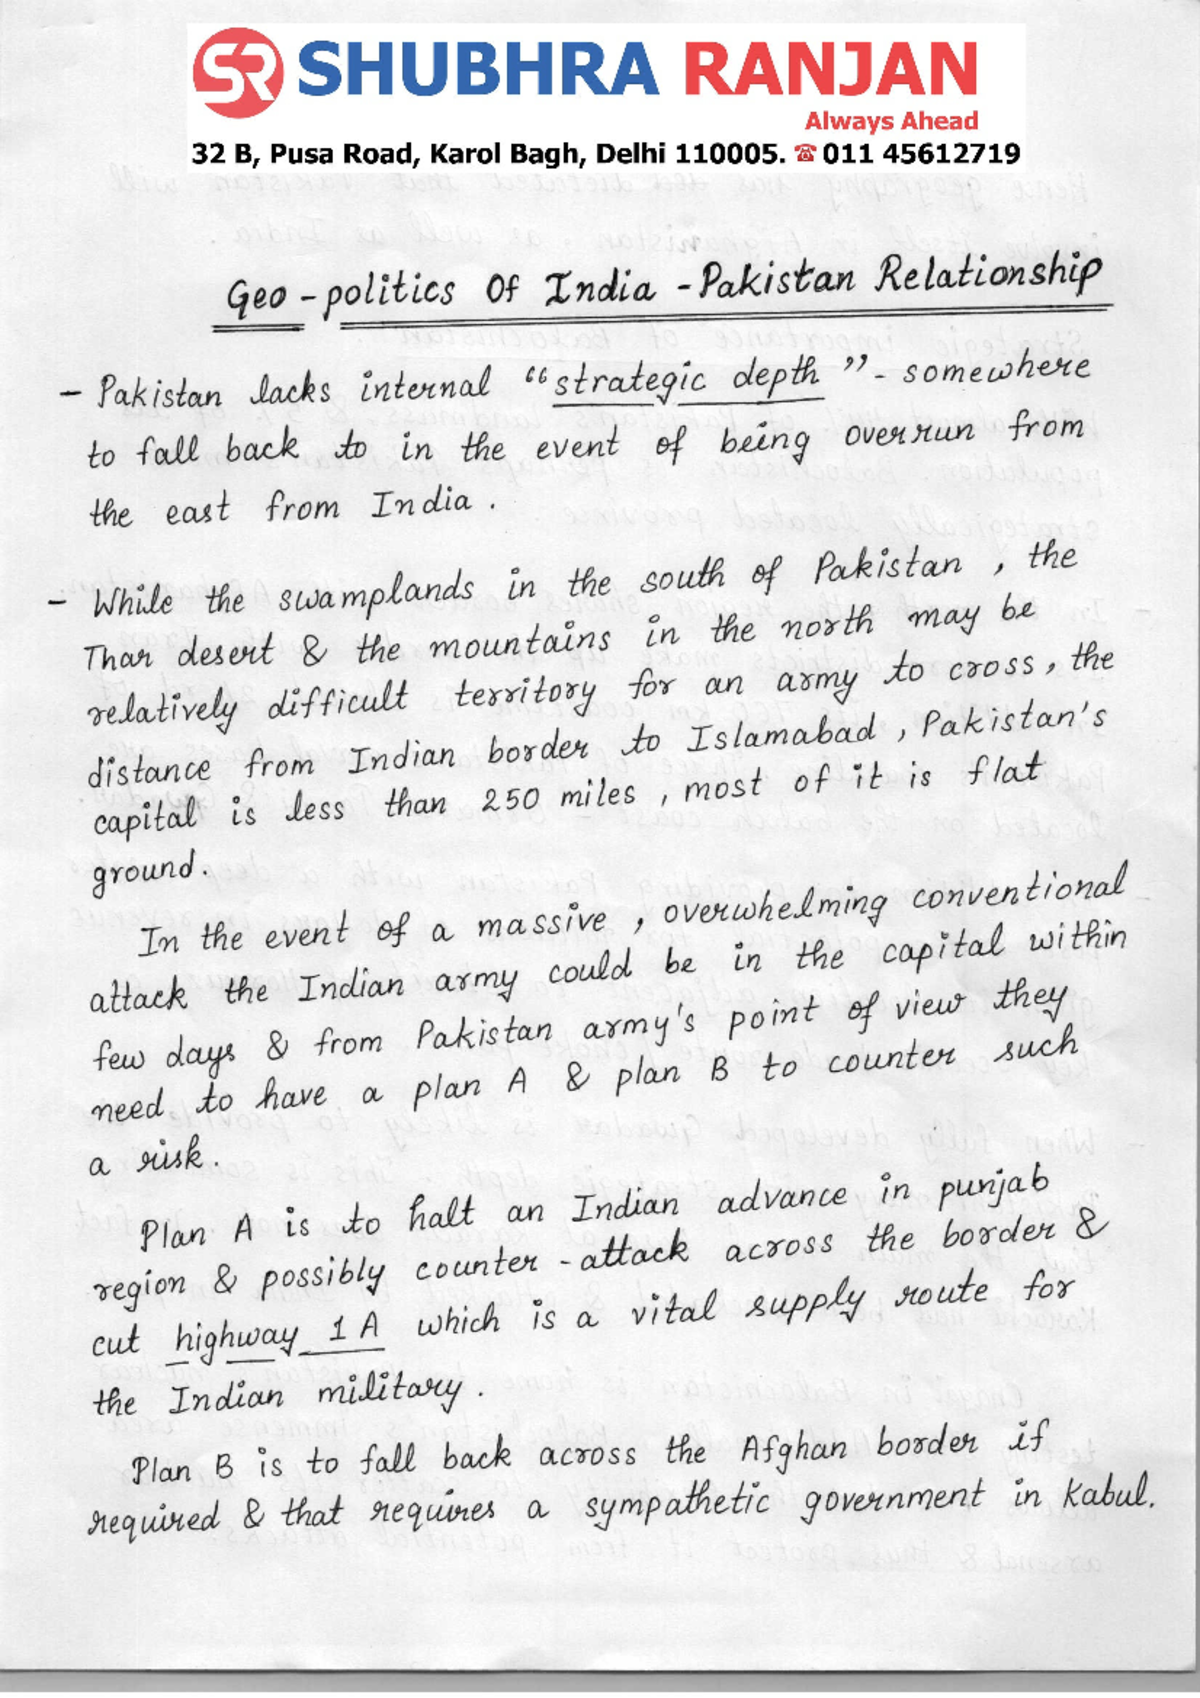 SR SHUBHRA RANJAN
Always Ahead
32 B, Pusa Road, Karol Bagh, Delhi 110005. ☎ 011 45612719
Geo-politics Of India-Pakistan Relationship
- Pakistan lacks internal "strategic depth" - somewhere
to fall back to in the event of being overrun from
the east from India.
- While the swamplands in the south of Pakistan, the
Thar desert & the mountains in the north may be
relatively difficult territory for an army to cross, the
distance from Indian border to Islamabad, Pakistan's
capital is less than 250 miles, most of it is flat
ground.
In the event of a massive, overwhelming conventional
attack the Indian army could be in the capital within
few days & from Pakistan army's point of view they
need to have a plan A & plan B to counter such
a risk.
Plan A is to halt an Indian advance in punjab
region & possibly counter-attack across the border &
cut highway 1A which is a vital supply route for
the Indian military.
Plan B is to fall back across the Afghan border if
required & that requires a sympathetic government in Kabul.